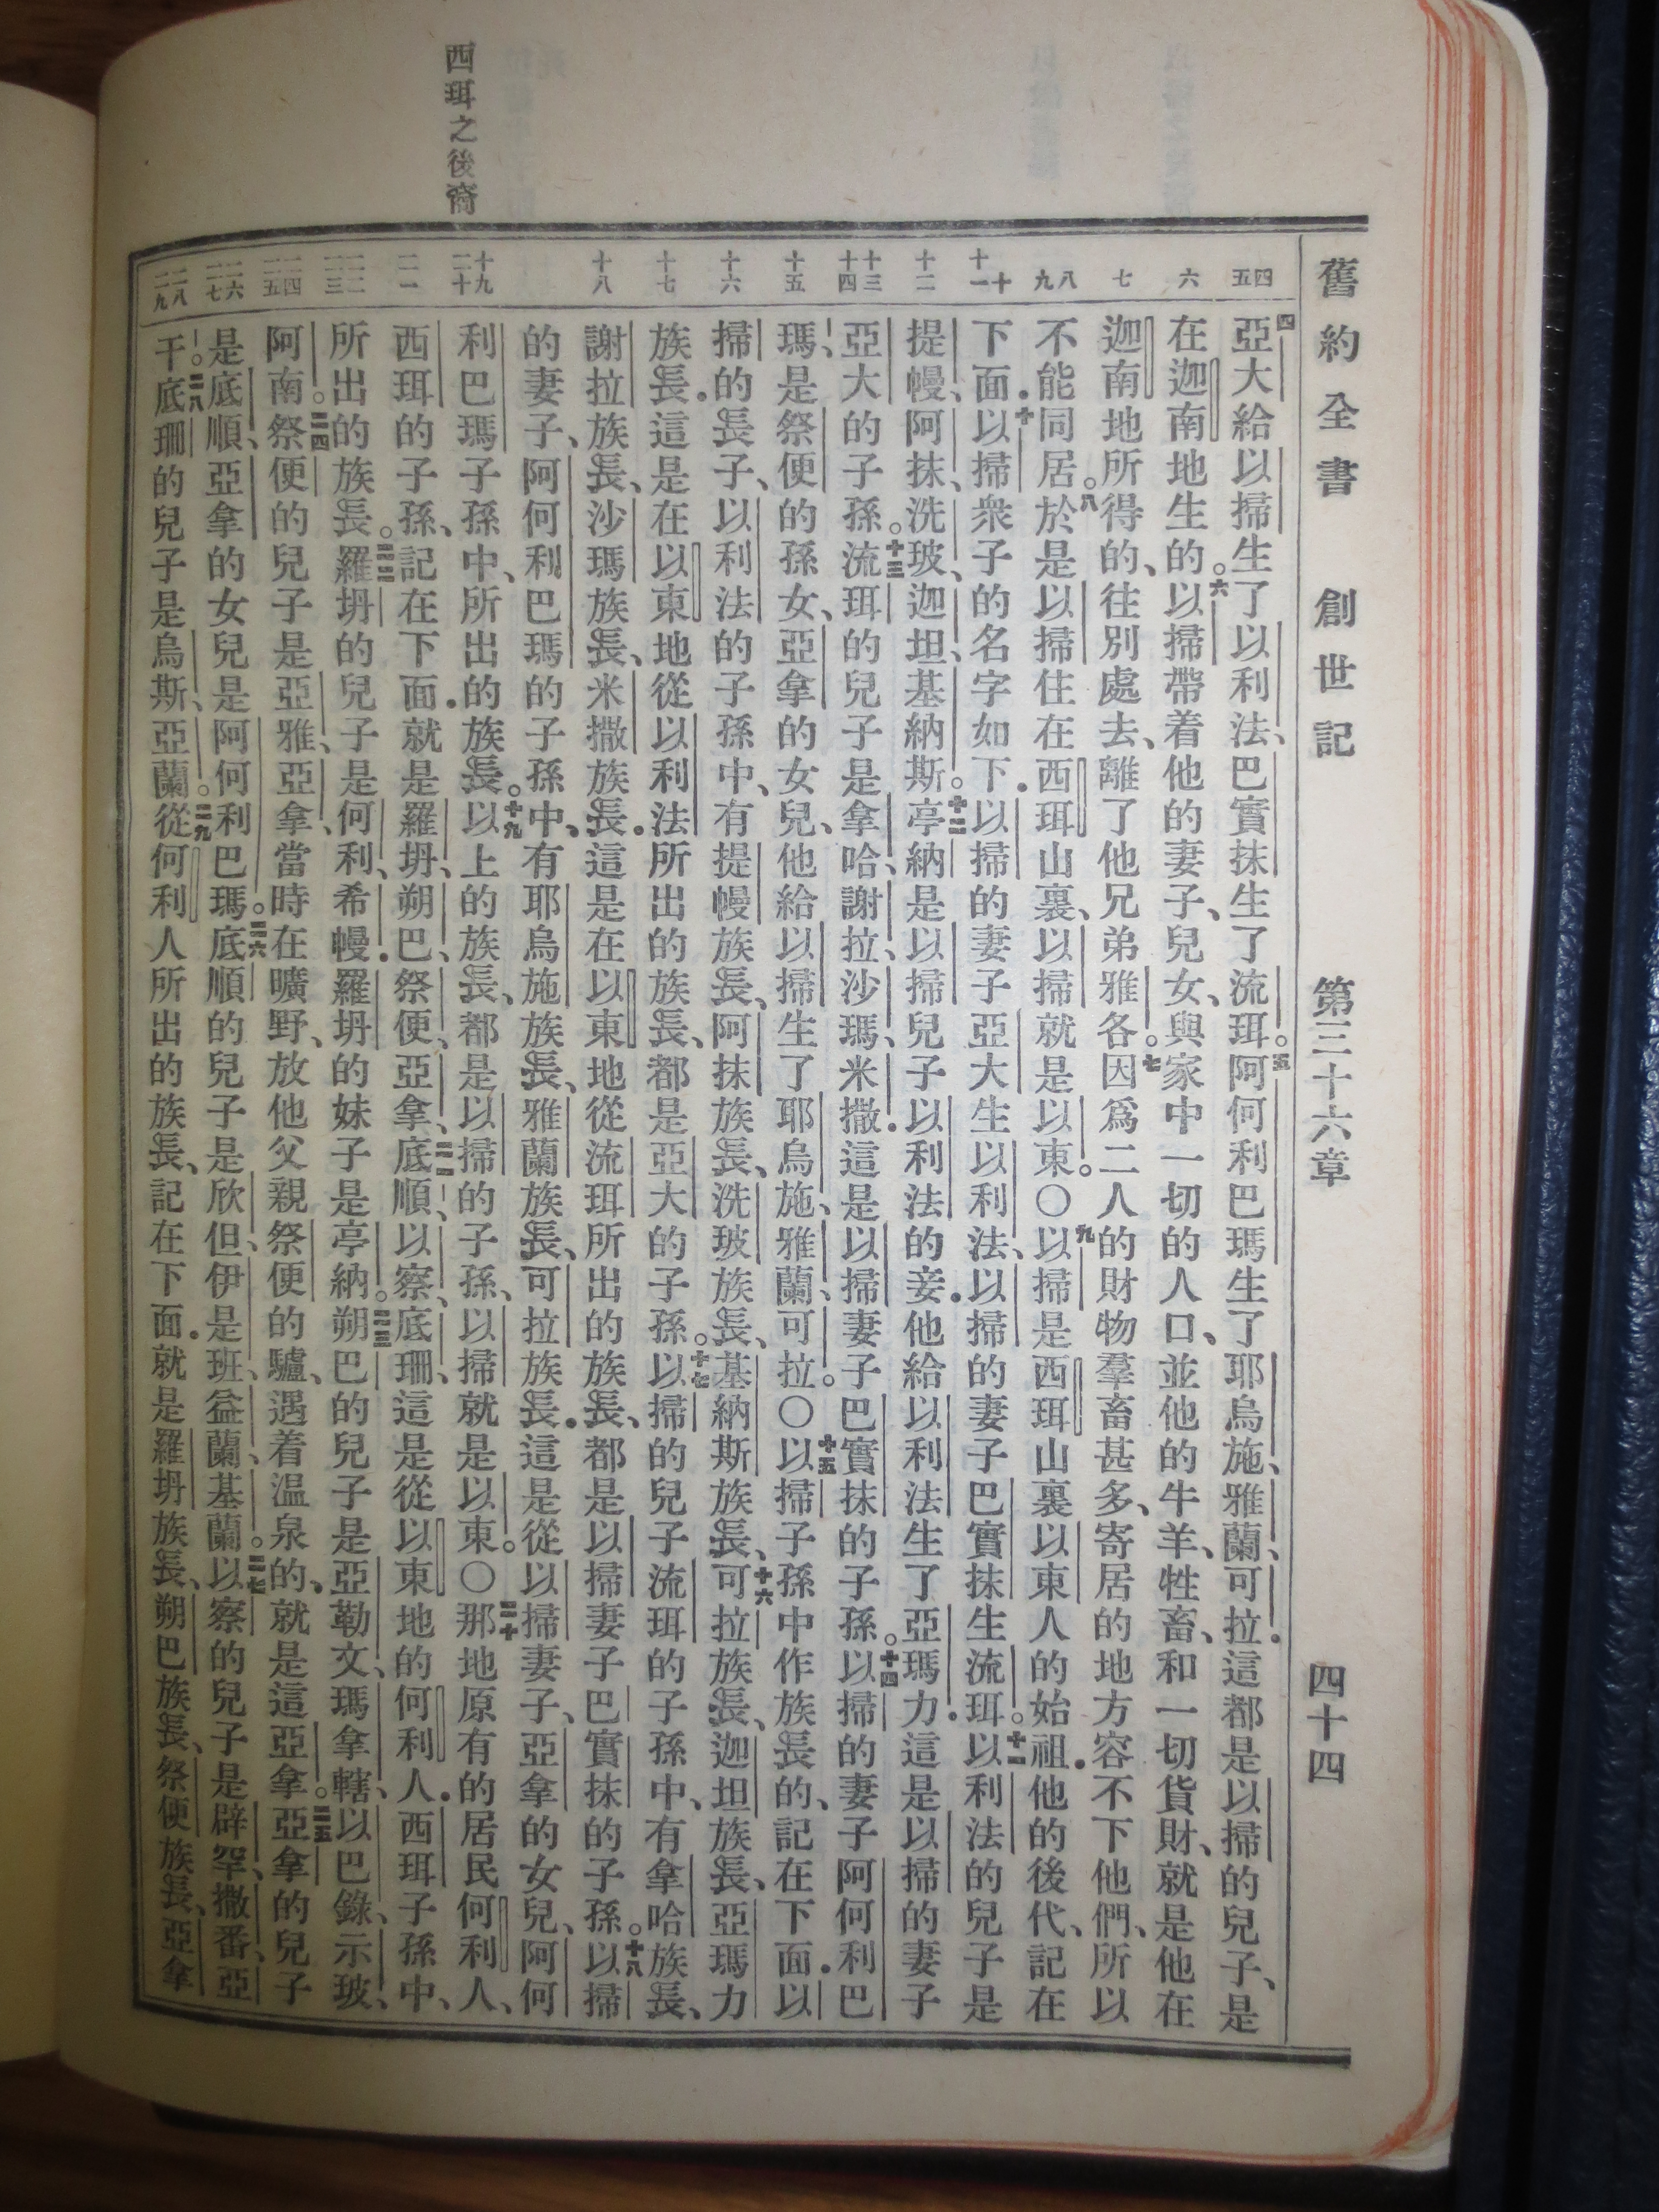 舊約全書 創世記 第三十六章 四十四
西珥之後裔
四五
六
七
八九
十十一
十二
十三十四
十五
十六
十七
十八
十九二十
二一
二二二三
二四二五
二六二七
二八二九
四亞大給以掃生了以利法、巴實抹生了流珥。五阿何利巴瑪生了耶烏施、雅蘭、可拉.這都是以掃的兒子、是
在迦南地生的。六以掃帶着他的妻子、兒女、與家中一切的人口、並他的牛羊、牲畜、和一切貨財、就是他在
迦南地所得的、往別處去、離了他兄弟雅各。七因爲二人的財物羣畜甚多、寄居的地方容不下他們、所以
不能同居。八於是以掃住在西珥山裏、以掃就是以東。〇九以掃是西珥山裏以東人的始祖.他的後代、記在
下面.十以掃衆子的名字如下.以掃的妻子亞大生以利法、以掃的妻子巴實抹生流珥。十一以利法的兒子是
提幔、阿抹、洗玻、迦坦、基納斯。十二亭納是以掃兒子以利法的妾.他給以利法生了亞瑪力.這是以掃的妻子
亞大的子孫。十三流珥的兒子是拿哈、謝拉、沙瑪、米撒.這是以掃妻子巴實抹的子孫。十四以掃的妻子阿何利巴
瑪、是祭便的孫女、亞拿的女兒、他給以掃生了耶烏施、雅蘭、可拉。〇十五以掃子孫中作族長的、記在下面.以
掃的長子、以利法的子孫中、有提幔族長、阿抹族長、洗玻族長、基納斯族長、十六可拉族長、迦坦族長、亞瑪力
族長.這是在以東地從以利法所出的族長、都是亞大的子孫。十七以掃的兒子流珥的子孫中、有拿哈族長、
謝拉族長、沙瑪族長、米撒族長.這是在以東地從流珥所出的族長、都是以掃妻子巴實抹的子孫。十八以掃
的妻子、阿何利巴瑪的子孫中、有耶烏施族長、雅蘭族長、可拉族長.這是從以掃妻子、亞拿的女兒、阿何
利巴瑪子孫中、所出的族長。十九以上的族長、都是以掃的子孫、以掃就是以東。〇二十那地原有的居民何利人、
西珥的子孫、記在下面.就是羅坍、朔巴、祭便、亞拿、二一底順、以察、底珊、這是從以東地的何利人.西珥子孫中、
所出的族長。二二羅坍的兒子是何利、希幔.羅坍的妹子是亭納。二三朔巴的兒子是亞勒文、瑪拿轄、以巴錄、示玻、
阿南。二四祭便的兒子是亞雅、亞拿、當時在曠野、放他父親祭便的驢、遇着温泉的、就是這亞拿。二五亞拿的兒子
是底順、亞拿的女兒是阿何利巴瑪。二六底順的兒子是欣但、伊是班、益蘭、基蘭。二七以察的兒子是辟罕、撒番、亞
干。二八底珊的兒子是烏斯、亞蘭。二九從何利人所出的族長、記在下面.就是羅坍族長、朔巴族長、祭便族長、亞拿